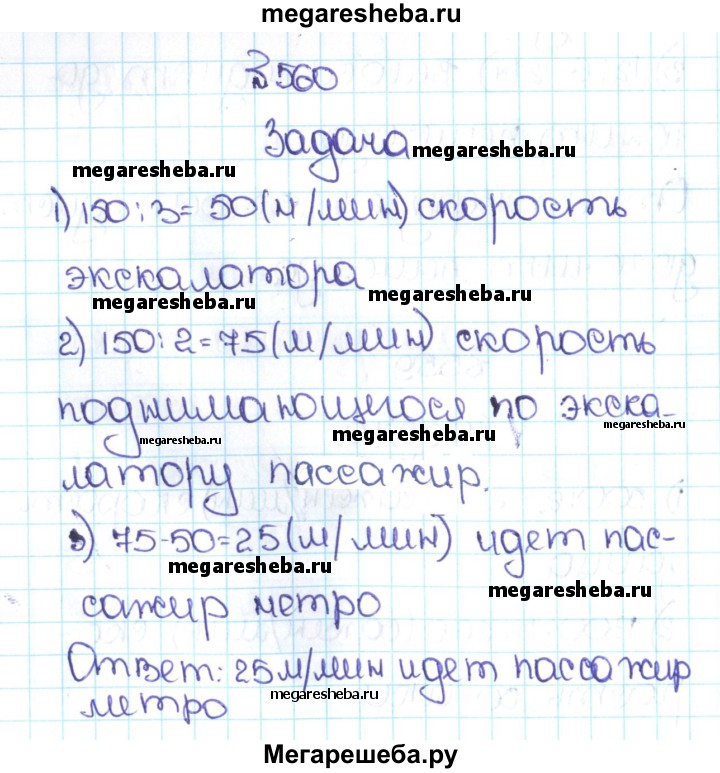 megaresheba.ru
№560
Задача megaresheba.ru
megaresheba.ru
1) 150:3= 50(м/мин) скорость
экскалатора
megaresheba.ru megaresheba.ru
2) 150:2=75(м/мин) скорость
поднимающегося по экска-
megaresheba.ru megaresheba.ru megaresheba.ru
латору пассажир.
3) 75-50=25(м/мин) идет пас-
megaresheba.ru megaresheba.ru
сажир метро
Ответ: 25м/мин идет пассажир
метро megaresheba.ru
Мегарешеба.ру